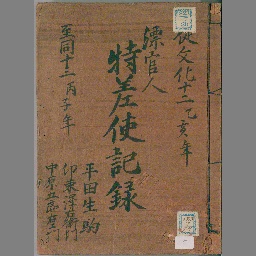 從文化十二乙亥年
漂官人
特差使記録
至同十三丙子年
平田生駒
印東澤右衛門
中原五郎左衛門